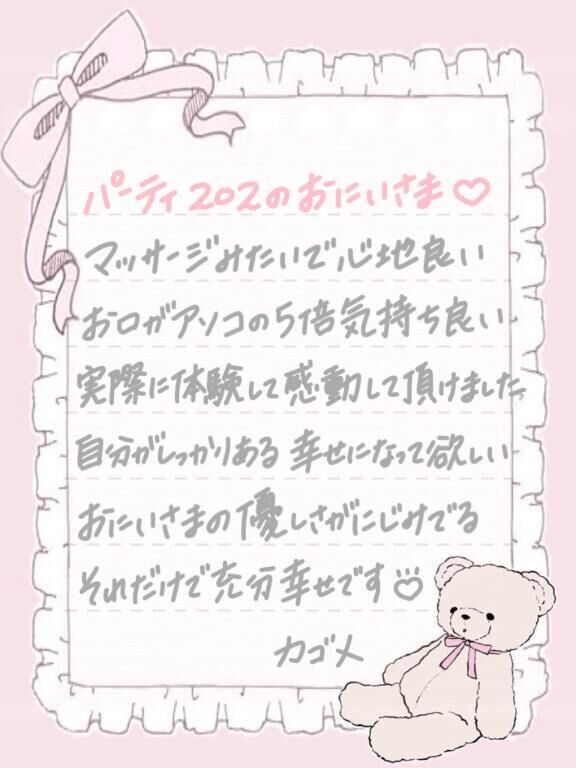 パーティ202のおにいさま♡
マッサージみたいで心地良い
お口がアソコの5倍気持ち良い
実際に体験して感動して頂けました
自分がしっかりある 幸せになって欲しい
おにいさまの優しさがにじみでる
それだけで充分幸せです
カゴメ